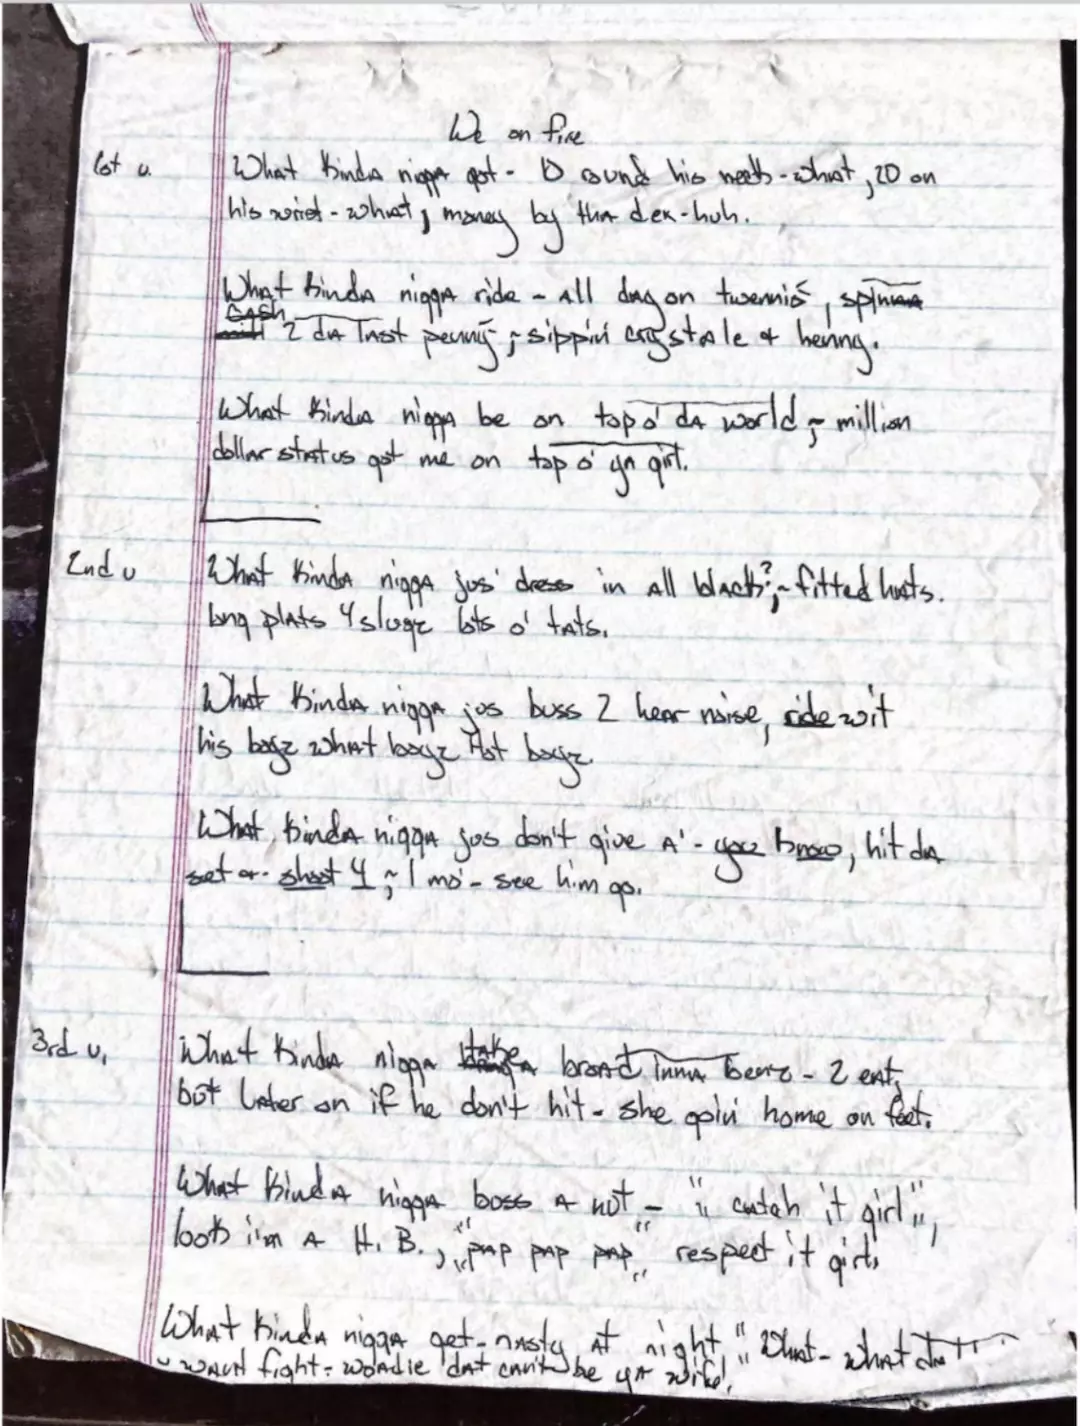 We on fire
1st v. What kinda nigga got - 10 round his neck - what, 20 on
his wrist - what, money by tha dex - huh.
What kinda nigga ride - all day on twennis,
cash 2 da last penny, sippin crystale & henny.
What kinda nigga be on top o' da world, million
dollar status got me on top o' ya girl.
2nd v What kinda nigga jus' dress in all black?, fitted hats.
long plats 4 slugz lots o' tats.
What kinda nigga jus buss 2 hear noise, ride wit
his boyz what boyz Hot boyz
What kinda nigga jus don't give A' - you know, hit da
set or shoot 4, 1 mo' - see him go.
3rd v. What kinda nigga take A broad inna benz - 2 eat,
but later on if he don't hit - she goin' home on feet.
What kinda nigga boss A not - " catch it girl",
look i'm A H. B., "pap pap pap" respect it girl.
What kinda nigga get - nasty at night "What - what
wanna fight - woadie dat can't be ya wife".